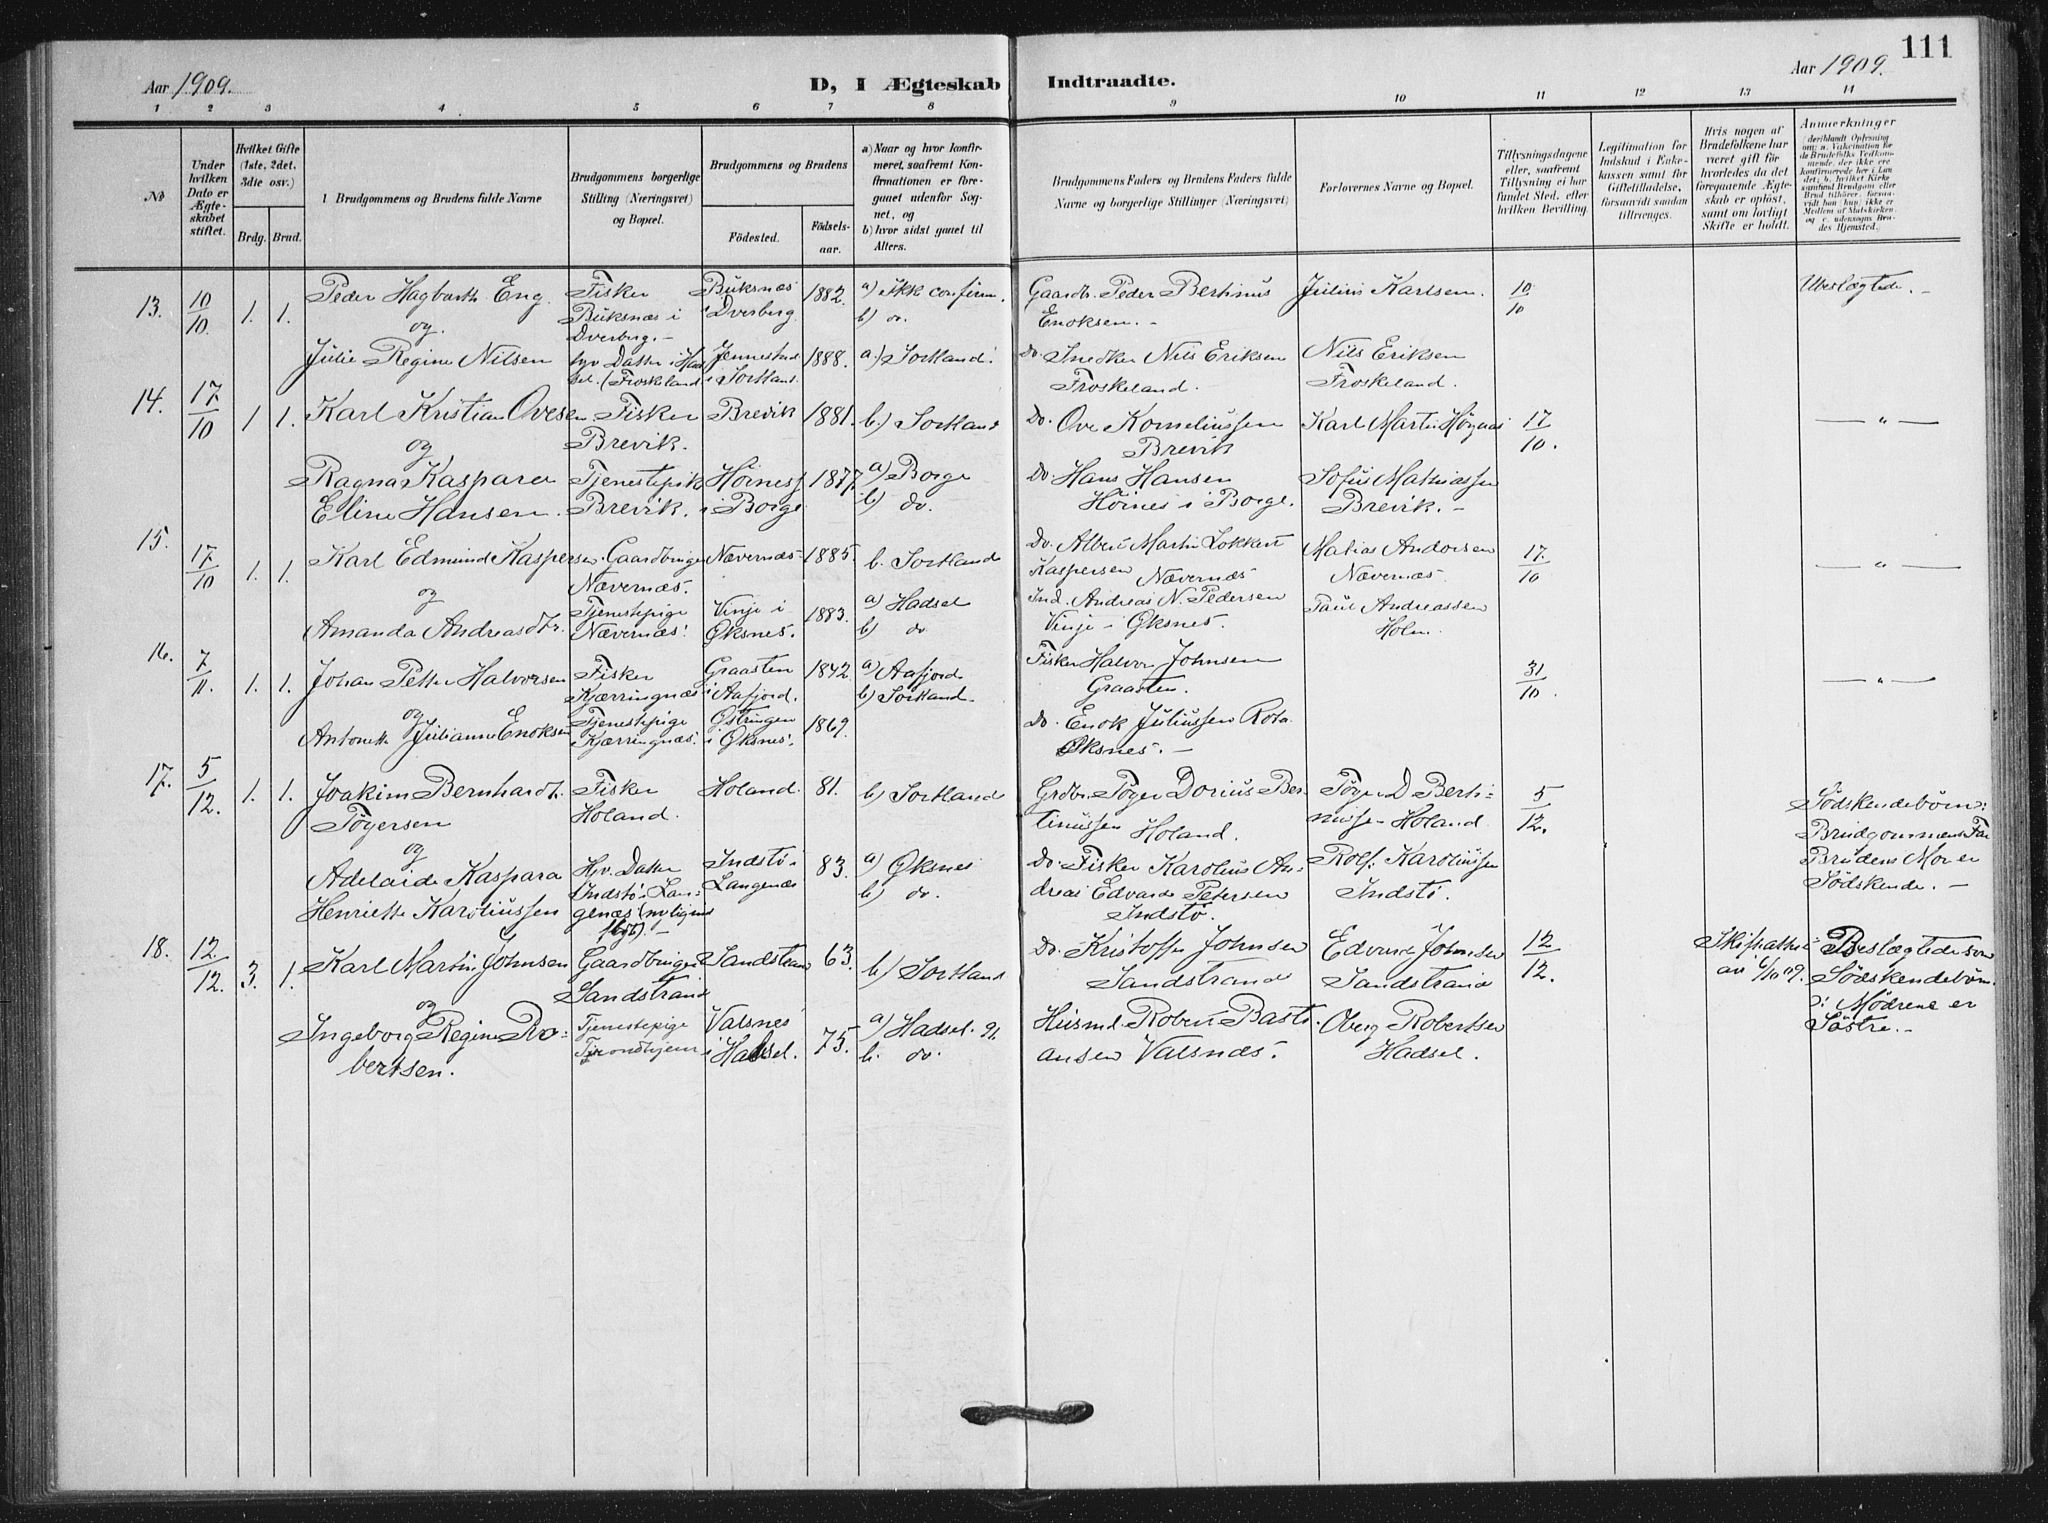 111
Aar 1909. D, I Ægteskab Indtraadte. Aar 1909.
1 2 3 4 5 6 7 8 9 10 11 12 13 14
No
Under hvilken Dato er Ægteskabet stiftet.
Hvilket Gifte (1ste, 2det, 3die osv.)
Brdg. Brud.
Brudgommens og Brudens fulde Navne
Brudgommens borgerlige Stilling (Næringsvei) og Bopæl.
Brudgommens og Brudens
Födested. Födselsaar.
a) Naar og hvor konfirmeret, saafremt Konfirmationen er foregaaet udenfor Sognet, og
b) hvor sidst gaaet til Alters.
Brudgommens Faders og Brudens Faders fulde Navne og borgerlige Stillinger (Næringsvei)
Forlovernes Navne og Bopæl.
Tillysningsdagene eller, saafremt Tillysning ei har fundet Sted, efter hvilken Bevilling.
Legitimation for Indskud i Enkekassen samt for Giftetilladelse, forsaavidt saadan tiltrænges.
Hvis nogen af Brudefolkene har været gift för hvorledes da det foregaaende Ægteskab er oplöst, samt om lovligt Skifte er holdt.
Anmerkninger
13. 10/10 1. 1. Peder Hagbarth Eng Fisker Buksnæs i Dverberg.- Buksnæs i Dverberg. 1882. a) Ikk confirm. b) do. Gaardbr. Peder Bertinus Enoksen.- Julius Karlsen. 10/10 Ubeslægtede.-
og
Julie Regine Nilsen hjv. Datter i Hadsel. (Froskeland Jennestad i Sortland. 1888. a.) Sortland. Do. Snedker Nils Eriksen Froskeland. Nils Eriksen Froskeland.
14. 17/10 1 1. Karl Kristian Ovesen Fisker Brevik. Brevik 1881. b.) Sortland Do. Ove Korneliussen Brevik Karl Martin 17/10. — " —
og
Ragna Kaspara Eline Hansen. Tjenestepik Brevik. Höines i Borge 1877. a) Borge b) do. Do. Hans Hansen Höines i Borge. Sofus Mathiassen Brevik.-
15. 17/10 1. 1. Karl Edmund Kaspersen. Gaardbruger Nævernæs. Nævernæs 1885. b. Sortland Do. Albert Martin Lokkert Kaspersen Nævernæs Matias Andorsen Nævernæs. 17./10 — " —
og
Amanda Andreasdtr. Tjenestepige Nævernæs. Vinje i Øksnes. 1883. a) Hadsel b) do Ind. Andreas N. Pedersen Vinje - Øksnes. Paul Andreassen Holm.
16. 7/11. 1. 1. Johan Petter Halvorsen Fisker Kjærringnæs Graasten i Aafjord. 1842. a) Aafjord b) Sortland. Fisker Halvor Johnsen Graasten. 31/10. — " —
og
Antonette Julianne Enoksen Tjenestepige Kjærringnæs. Østringen i Øksnes. 1869. Do. Enok Juliussen Øksnes.-
17. 5/12. 1. 1. Joakim Bernhardt Tögersen Fisker Holand. Holand. 81. b) Sortland Grdbr. Töger Dorius Bertinussen Holand. Töger D Bertinussen Holand 5/12. Södskendebörn: Brudgommens Far Brudens Mor er Södskende.-
og
Adelaide Kaspara Henriette Karoliussen Hjv. Datter Indstö i Langenæs Indstö i Langenæs 83. a) Øksnes b) do. Do. Fisker Karolius Andreas Edvard Petersen Indstö. Rolf Karoliussen Indstö.
18. 12/12. 3. 1. Karl Martin Johnsen Gaardbruger Sandstrand Sandstrand 63. b) Sortland Do. Kristoffer Johnsen Sandstrand Edvard Johnsen Sandstrand 12/12. Skifteattest av 6/10 09. Beslægtede som Södskendebörn: Mödrene er Söstre.-
og
Ingeborg Regine Robertsen. Tjenestepige Trondhjem Valsnes i Hadsel. 75. a) Hadsel 91. b. do. Husmd. Robert Bastiansen Valsnæs. Oberg Robertsen Hadsel.